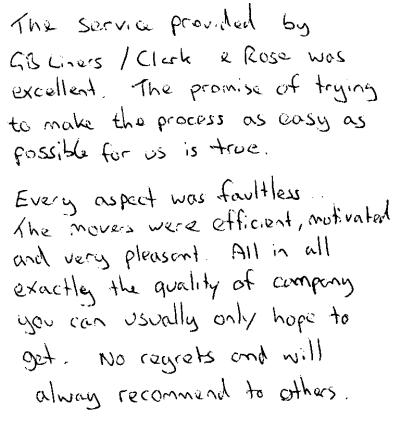 The service provided by
GB Liners / Clark & Rose was
excellent. The promise of trying
to make the process as easy as
possible for us is true.
Every aspect was faultless..
The movers were efficient, motivated
and very pleasant. All in all
exactly the quality of company
you can usually only hope to
get. No regrets and will
alway recommend to others.